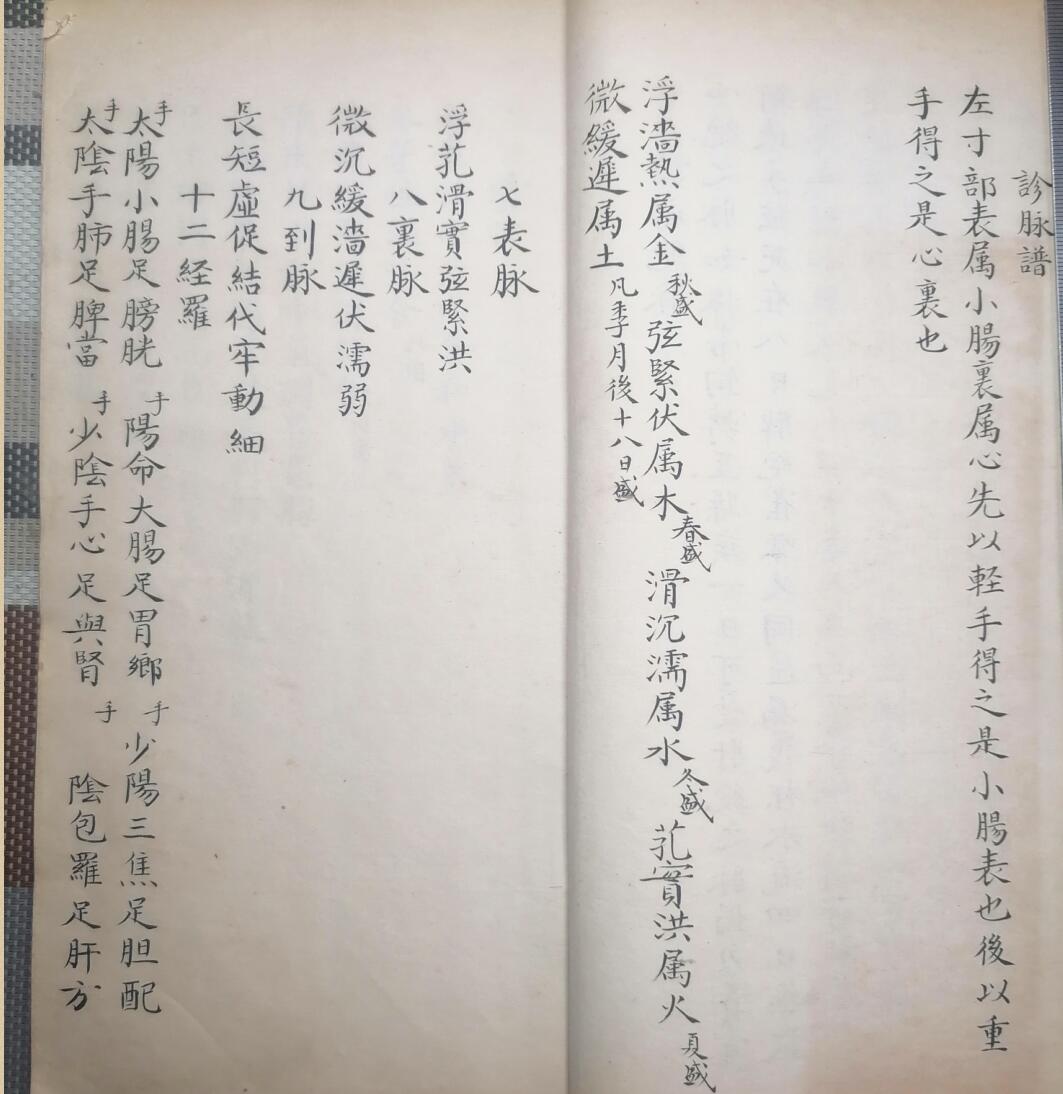 診脉譜
左寸部表属小腸裏属心先以軽手得之是小腸表也後以重
手得之是心裏也
浮濇熱属金秋盛弦緊伏属木春盛滑沉濡属水冬盛芤實洪属火夏盛
微緩遲属土凡季月後十八日盛
七表脉
浮芤滑實弦緊洪
八裏脉
微沉緩濇遲伏濡弱
九到脉
長短虛促結代牢動細
十二経羅
手太陽小腸足膀胱手陽命大腸足胃鄉手少陽三焦足胆配
手太陰手肺足脾當手少陰手心足與腎手陰包羅足肝方